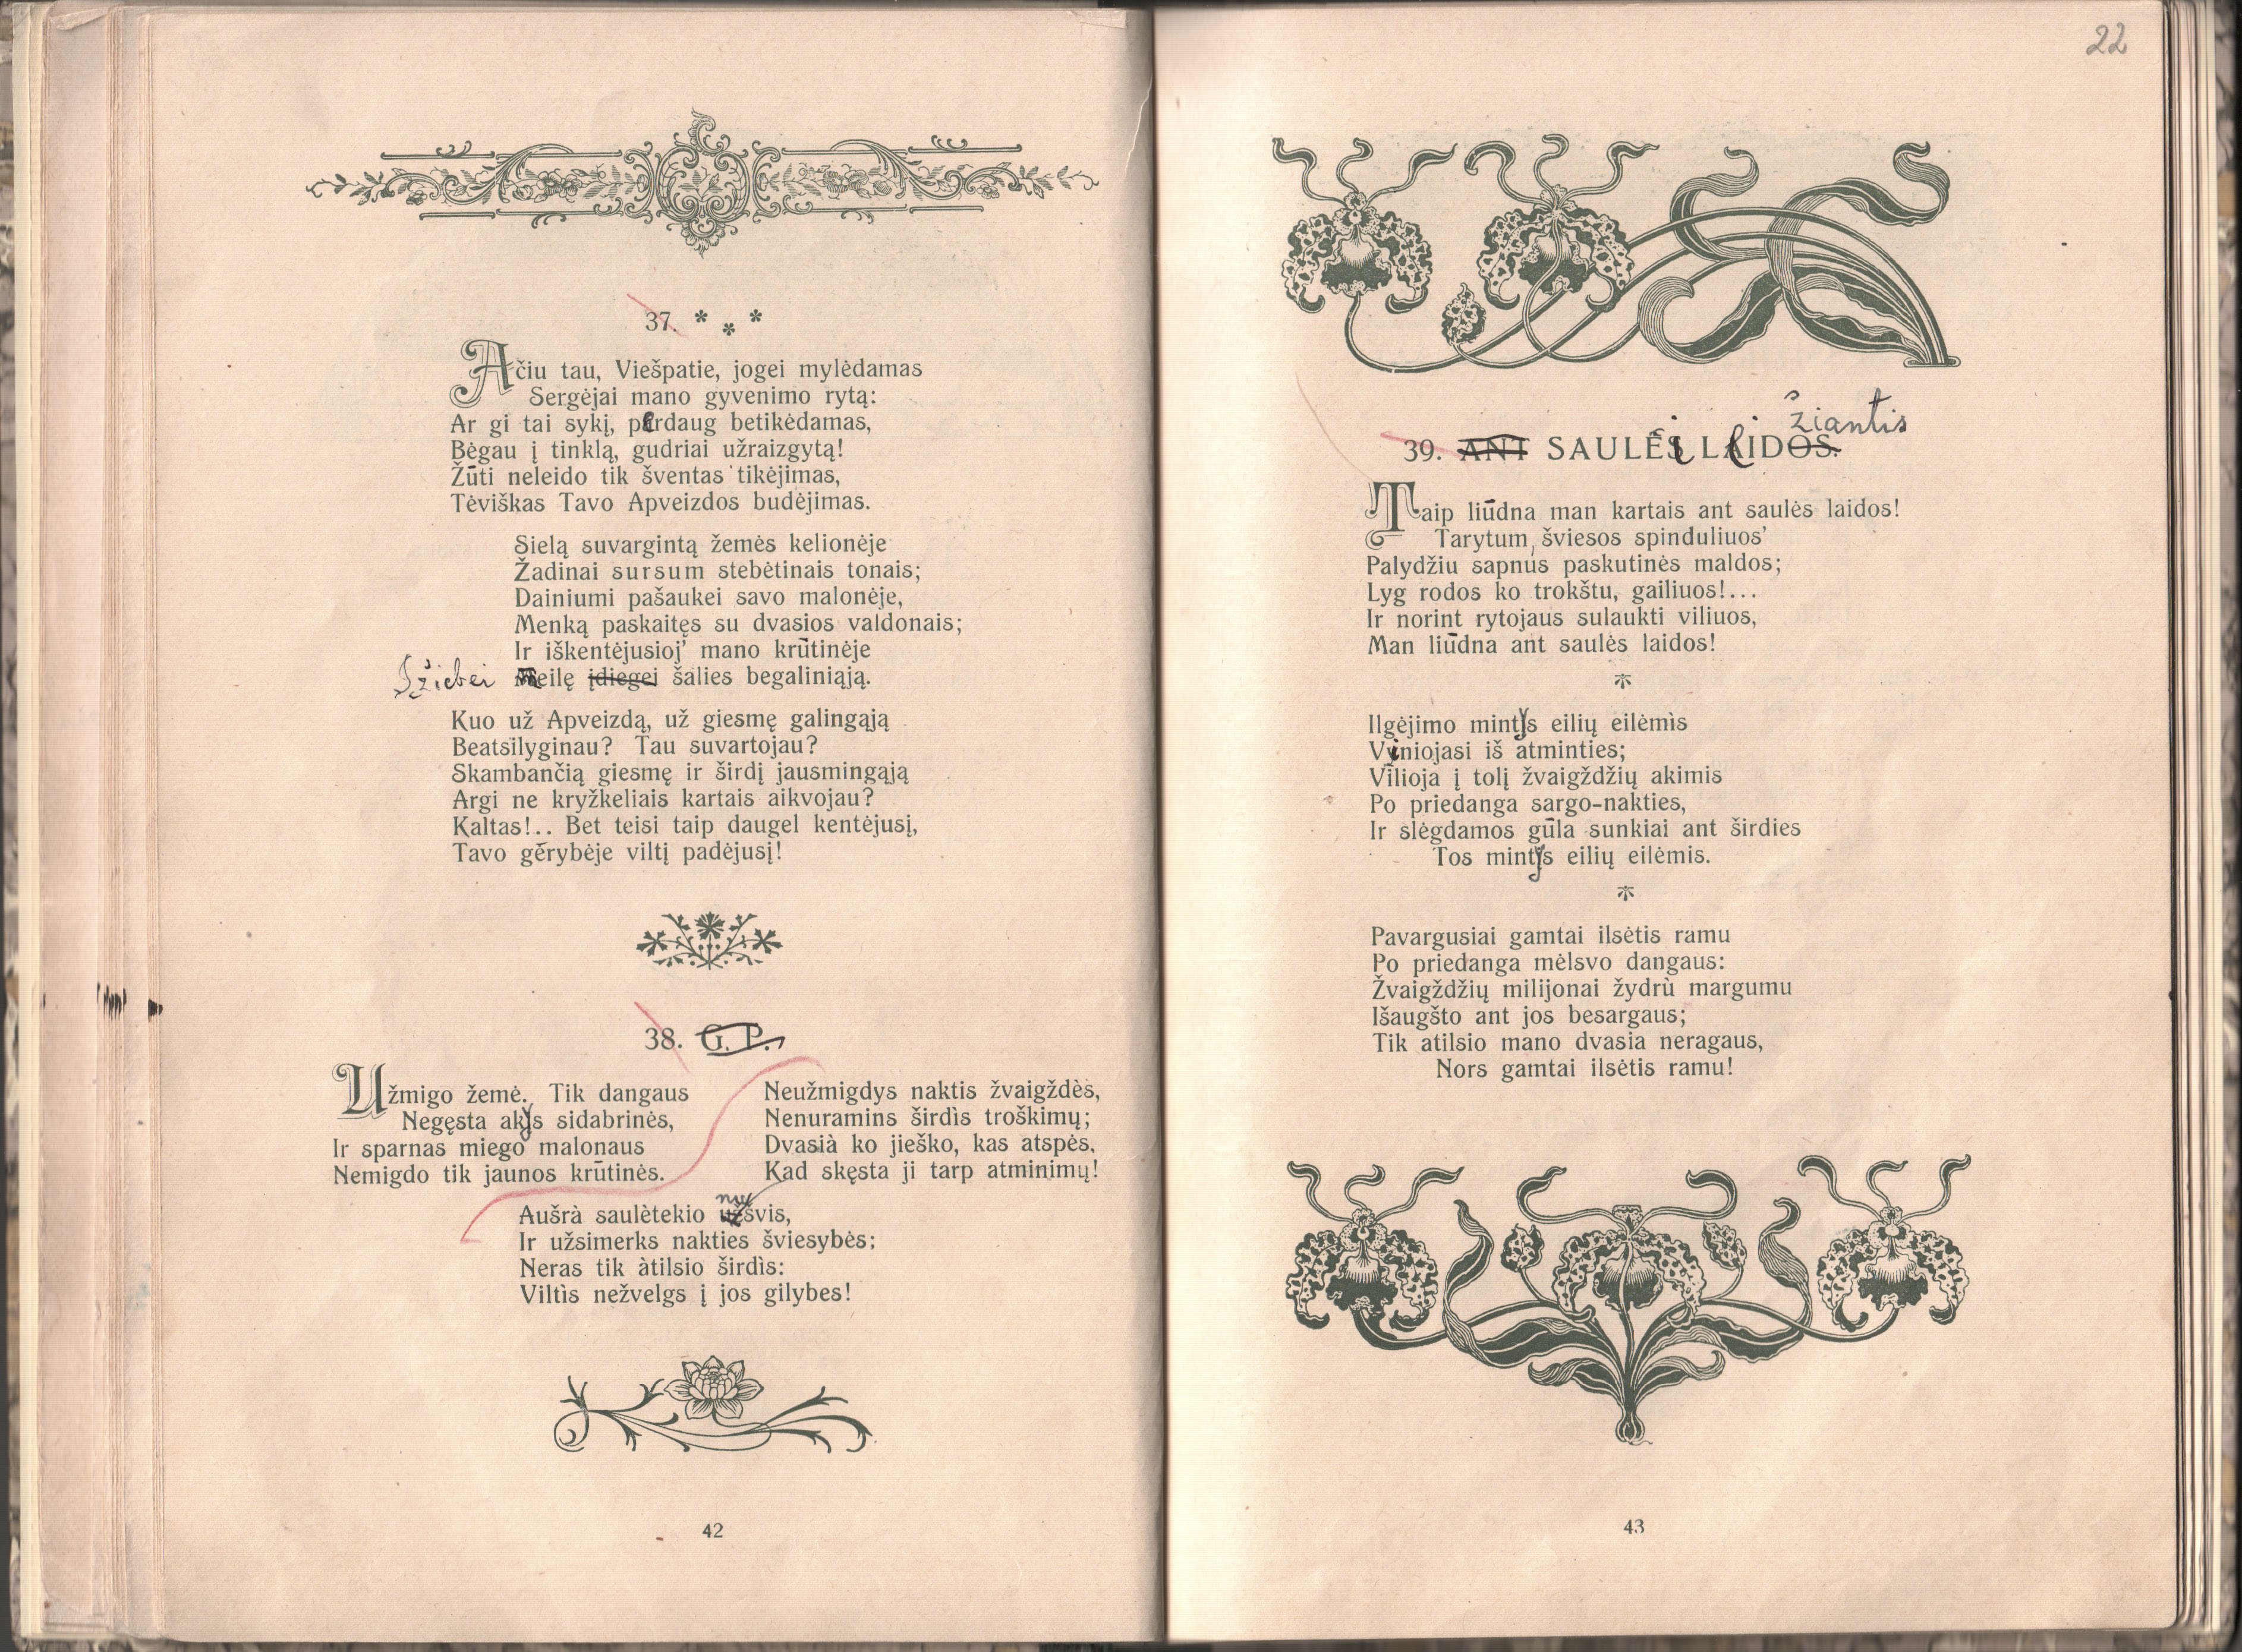 22
37. * * *
Ačiu tau, Viešpatie, jogei mylėdamas
Sergėjai mano gyvenimo rytą:
Ar gi tai sykį, perdaug betikėdamas,
Bėgau į tinklą, gudriai užraizgytą!
Žūti neleido tik šventas tikėjimas,
Tėviškas Tavo Apveizdos budėjimas.
Sielą suvargintą žemės kelionėje
Žadinai sursum stebėtinais tonais;
Dainiumi pašaukei savo malonėje,
Menką paskaitęs su dvasios valdonais;
Ir iškentėjusioj' mano krūtinėje
Įžiebei meilę įdiegei šalies begaliniąją.
Kuo už Apveizdą, už giesmę galingąją
Beatsilyginau? Tau suvartojau?
Skambančią giesmę ir širdį jausmingąją
Argi ne kryžkeliais kartais aikvojau?
Kaltas!.. Bet teisi taip daugel kentėjusį,
Tavo gėrybėje viltį padėjusį!
38. G. P.
Užmigo žemė. Tik dangaus
Negęsta akys sidabrinės,
Ir sparnas miego malonaus
Nemigdo tik jaunos krūtinės.
Neužmigdys naktis žvaigždės,
Nenuramins širdìs troškimų;
Dvasià ko jieško, kas atspės,
Kad skęsta ji tarp atminimų!
nu
Aušrà saulėtekio užšvis,
Ir užsimerks nakties šviesybės;
Neras tik àtilsio širdìs:
Viltìs nežvelgs į jos gilybes!
42
žiantis
39. ANT SAULEI LEIDOS.
Taip liūdna man kartais ant saulės laidos!
Tarytum, šviesos spinduliuos'
Palydžiu sapnus paskutinės maldos;
Lyg rodos ko trokštu, gailiuos!...
Ir norint rytojaus sulaukti viliuos,
Man liūdna ant saulės laidos!
*
Ilgėjimo mintys eilių eilėmìs
Vyniojasi iš atminties;
Vilioja į tolį žvaigždžių akimis
Po priedanga sargo-nakties,
Ir slėgdamos gūla sunkiai ant širdies
Tos mintys eilių eilėmis.
*
Pavargusiai gamtai ilsėtis ramu
Po priedanga mėlsvo dangaus:
Žvaigždžių milijonai žydrù margumu
Išaugšto ant jos besargaus;
Tik atilsio mano dvasia neragaus,
Nors gamtai ilsėtis ramu!
43